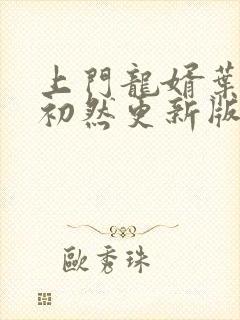 上門龍婿葉
初然更新版
歐秀珠